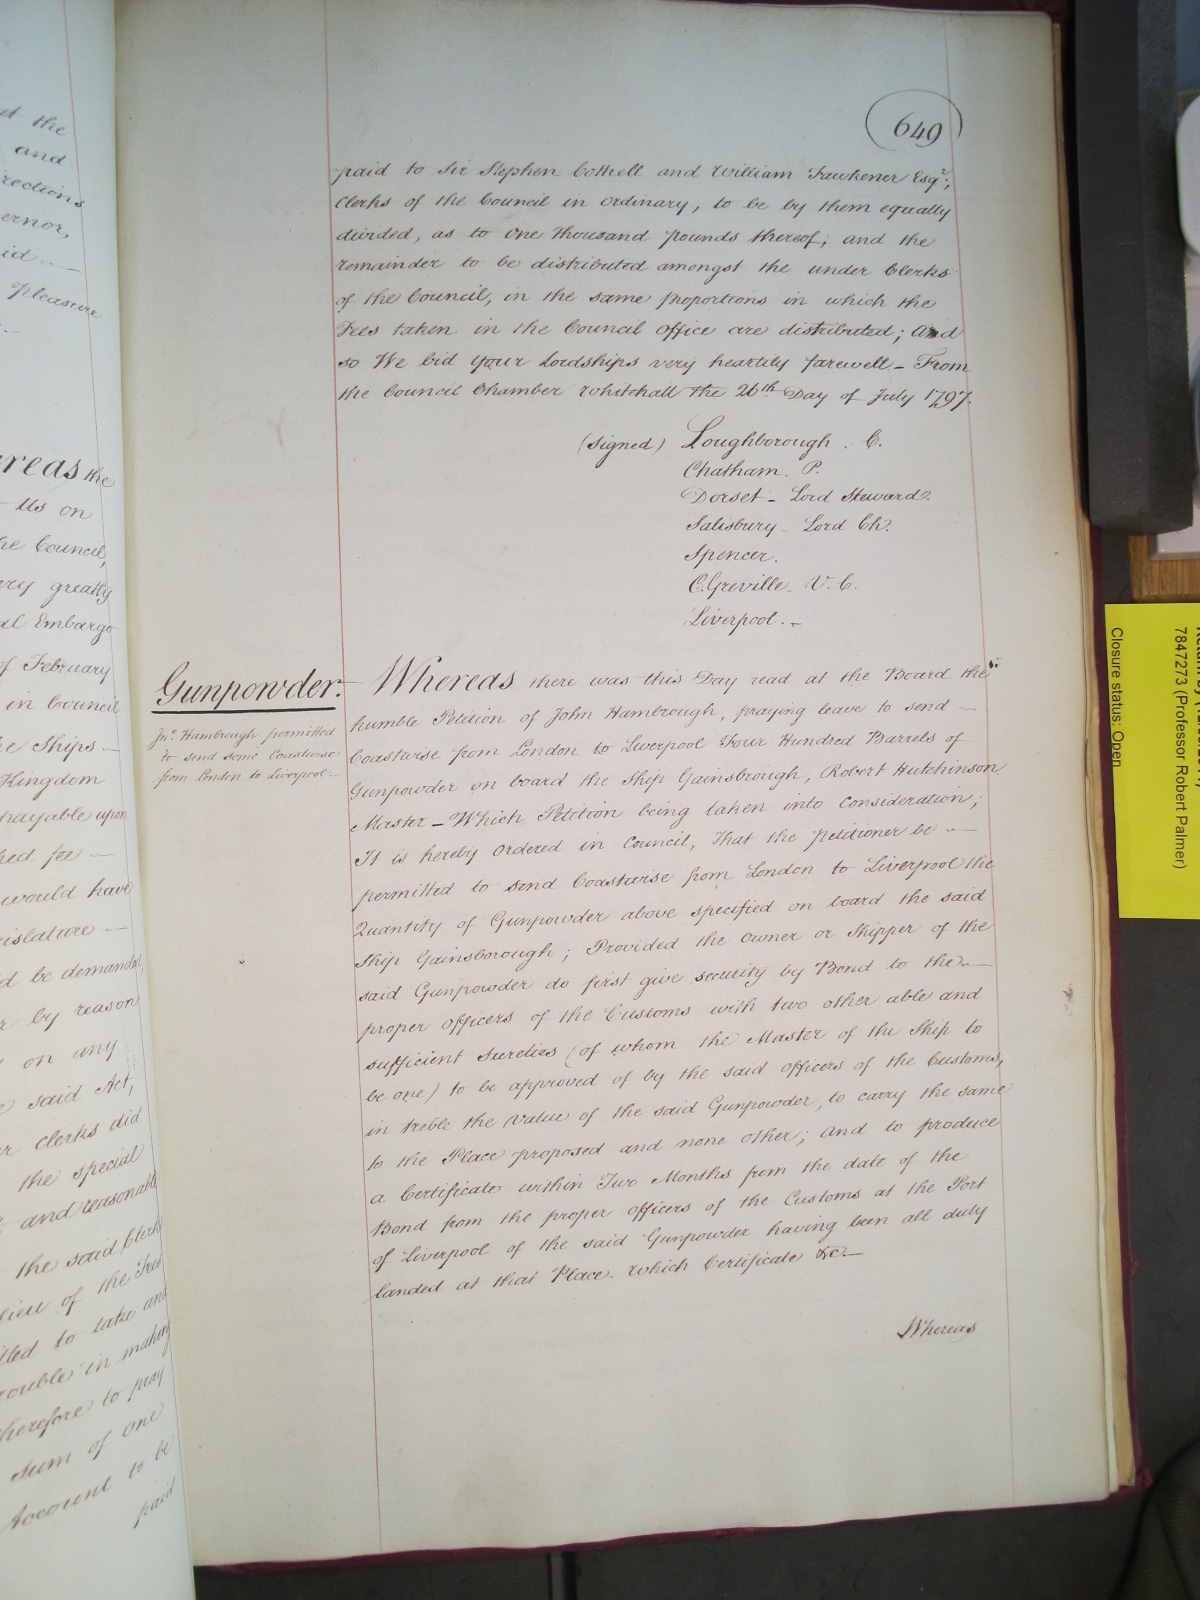 at the
and
rections
ernor,
id
pleasure
reas the
Us on
he Council,
ery greatly
al Embargo
of February
in Council
he Ships
Kingdom
payable upon
hed fee
would have
islature
d be demanded,
r by reason
on any
said Act,
r Clerks did
the special
and reasonable
the said Clerk
lieu of the Fees
tted to take and
rouble in making
therefore to pray
Sum of One
Account to be
paid
649
paid to Sir Stephen Cottrell and William Fawkener Esqr.,
Clerks of the Council in ordinary, to be by them equally
divided, as to One Thousand pounds thereof; and the
remainder to be distributed amongst the under Clerks
of the Council, in the same proportions in which the
Fees taken in the Council office are distributed; And
so We bid your Lordships very heartily farewell - From
the Council Chamber Whitehall the 26th Day of July 1797.
(Signed) Loughborough. C.
Chatham. P.
Dorset - Lord Steward.
Salisbury - Lord Ch.
Spencer.
C. Greville - V. C.
Liverpool. -
Gunpowder.
Jno. Hambrough permitted
to send some Coastwise
from London to Liverpool.
Whereas there was this Day read at the Board the
humble Petition of John Hambrough, praying leave to send
Coastwise from London to Liverpool Four Hundred Barrels of
Gunpowder on board the Ship Gainsbrough, Robert Hutchinson
Master - Which Petition being taken into Consideration;
It is hereby Ordered in Council, That the petitioner be
permitted to send Coastwise from London to Liverpool the
Quantity of Gunpowder above specified on board the said
Ship Gainsborough; Provided the Owner or Shipper of the
said Gunpowder do first give security by Bond to the
proper officers of the Customs with two other able and
sufficient Sureties (of whom the Master of the Ship to
be one) to be approved of by the said officers of the Customs,
in treble the Value of the said Gunpowder, to carry the same
to the Place proposed and none other; And to produce
a Certificate within Two Months from the date of the
Bond from the proper officers of the Customs at the Port
of Liverpool of the said Gunpowder having been all duly
landed at that Place. Which Certificate &c.
Whereas
7847273 (Professor Robert Palmer)
Closure status: Open